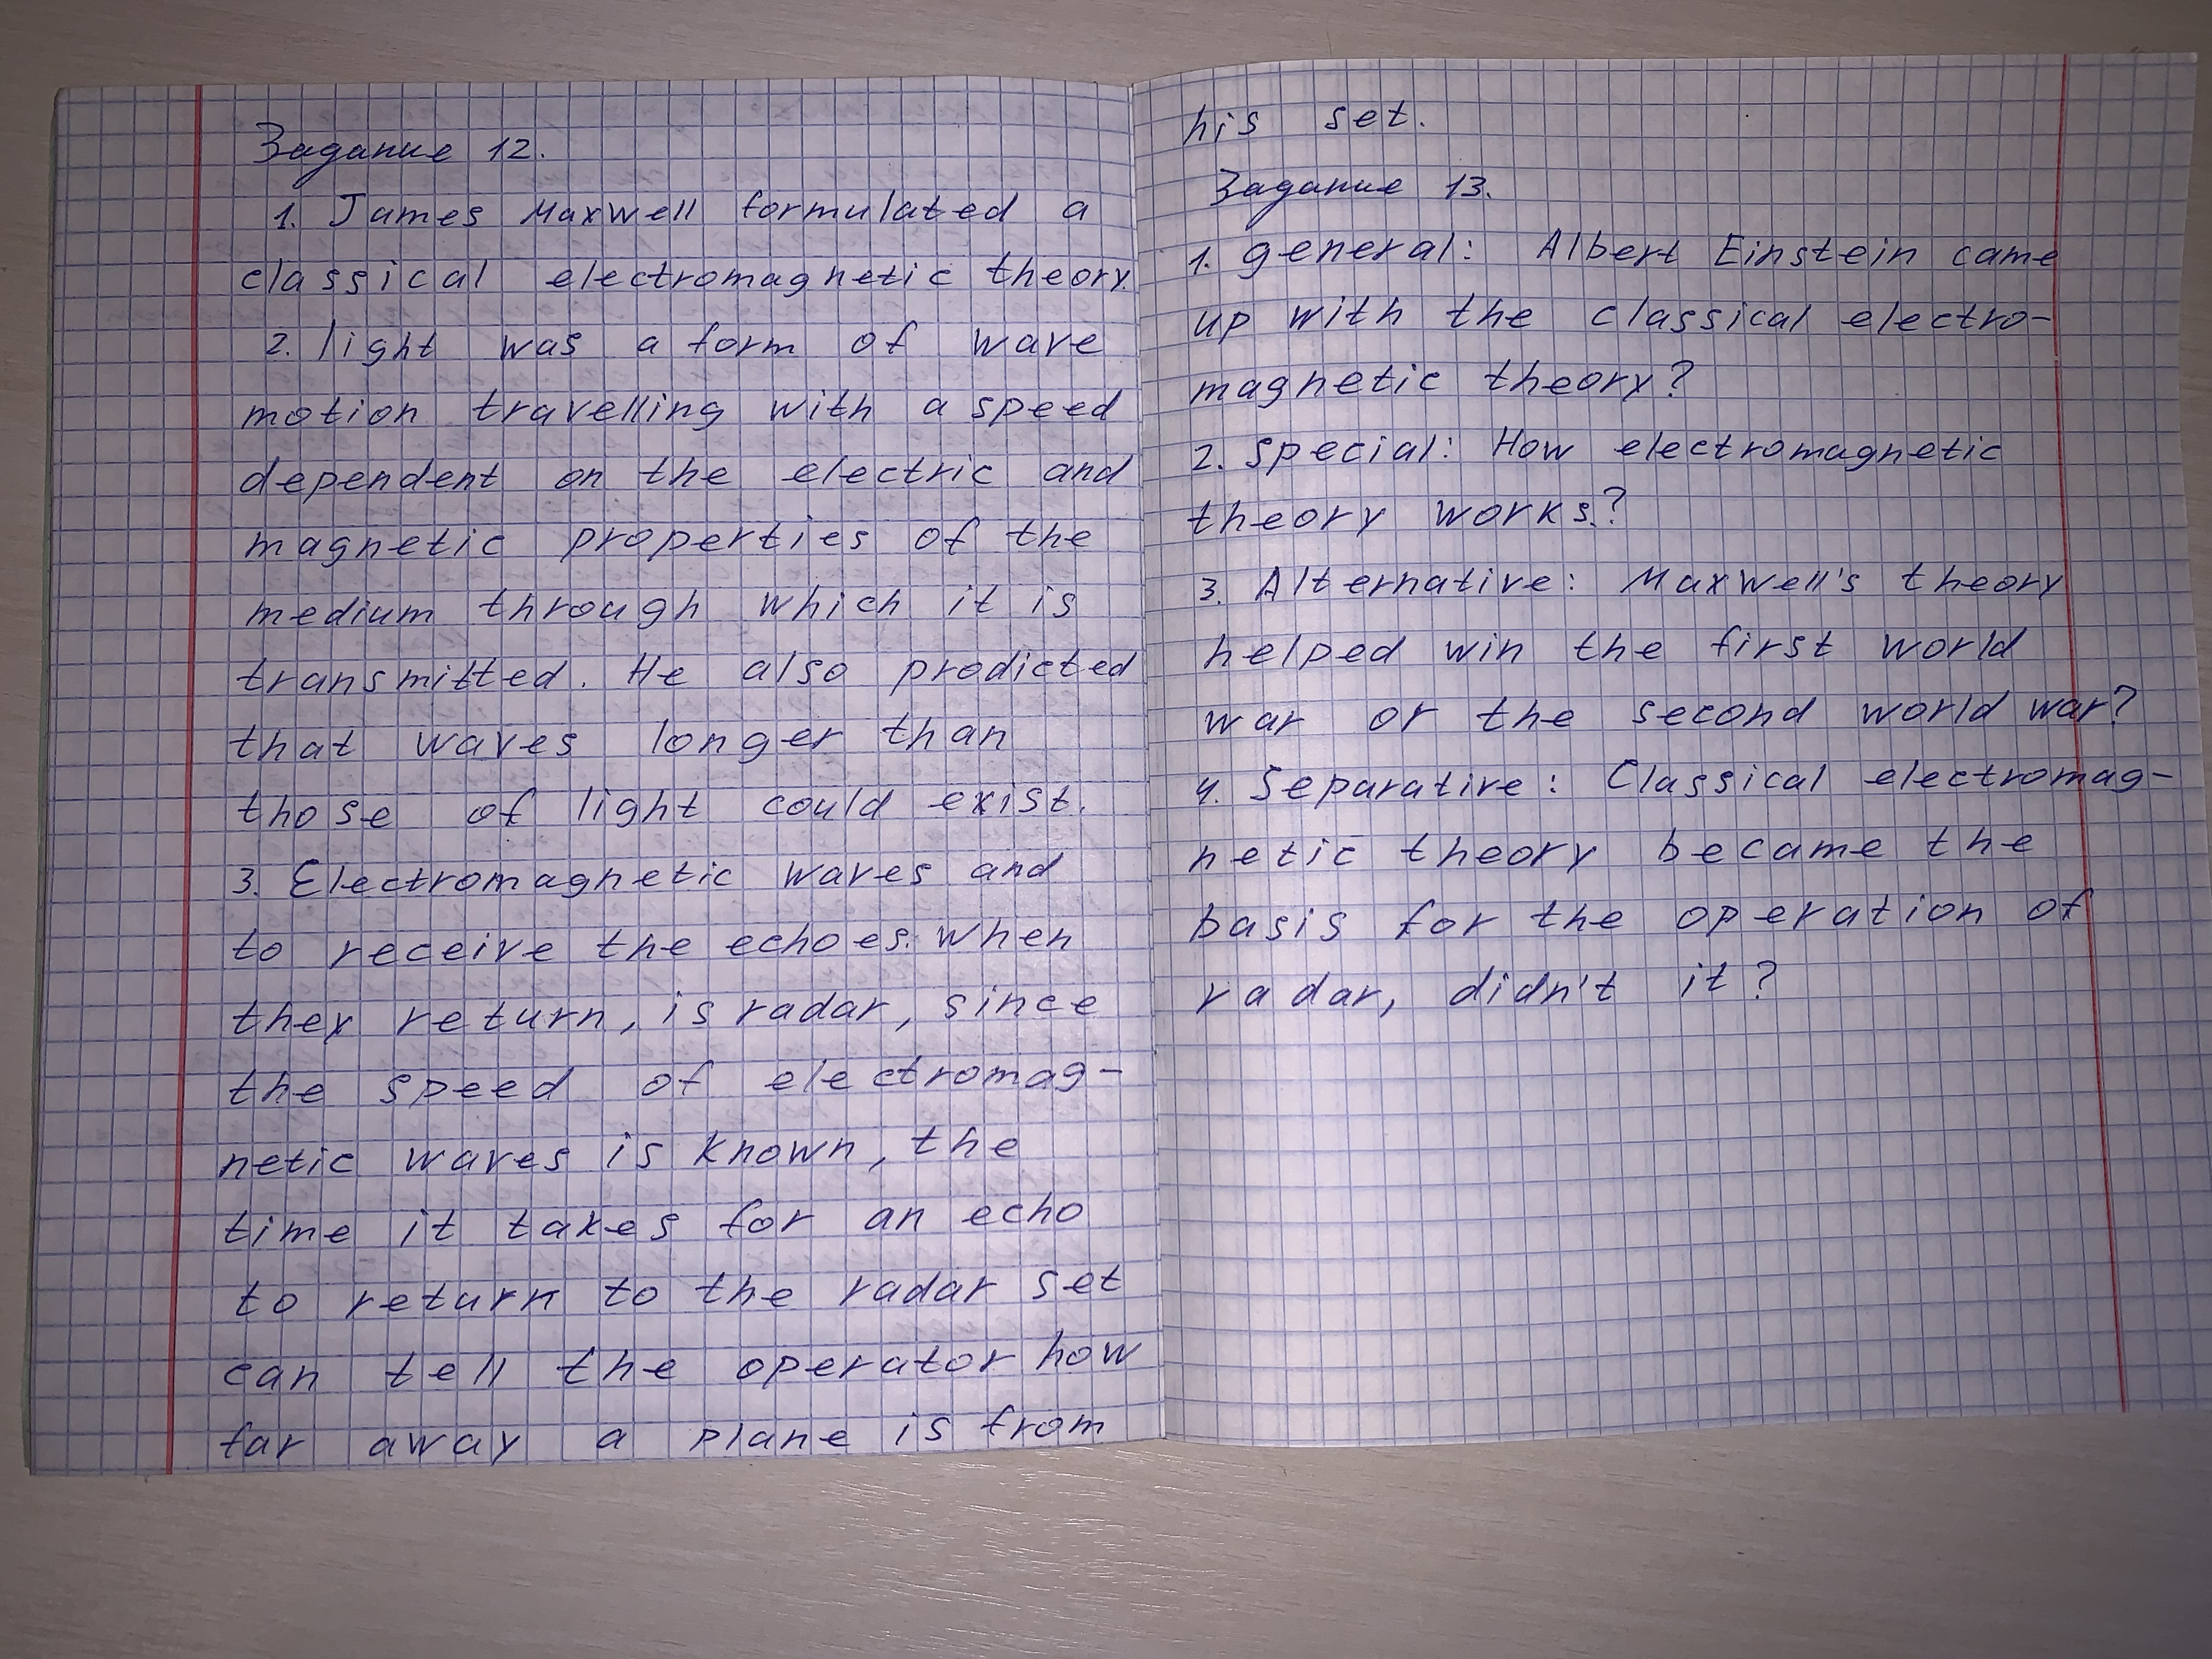 Задание 12.
1. James Maxwell formulated a
classical electromagnetic theory.
2. light was a form of wave
motion travelling with a speed
dependent on the electric and
magnetic properties of the
medium through which it is
transmitted. He also prodicted
that waves longer than
those of light could exist.
3. Electromagnetic waves and
to receive the echoes. when
they return, is radar, since
the speed of electromag-
netic waves is known, the
time it takes for an echo
to return to the radar set
can tell the operator how
far away a plane is from
his set.
Задание 13.
1. general: Albert Einstein came
up with the classical electro-
magnetic theory?
2. special: How electromagnetic
theory works.?
3. Alternative: Maxwell's theory
helped win the first world
war or the second world war?
4. Separative: Classical electromag-
netic theory became the
basis for the operation of
radar, didn't it?